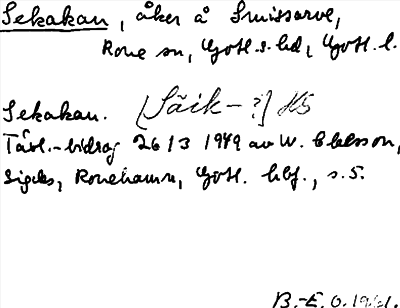 Sekakan, åker å Smissarve,
Rone sn, Gotl. s. hd, Gotl. l.
Sekakan. [Säik-?] HS
Tävl.-bidrag 26/3 1949 av W. Ekelsson,
Sigdes, Ronehamn, Gotl. hbf., s. 5.
B.-E. O. 1961.